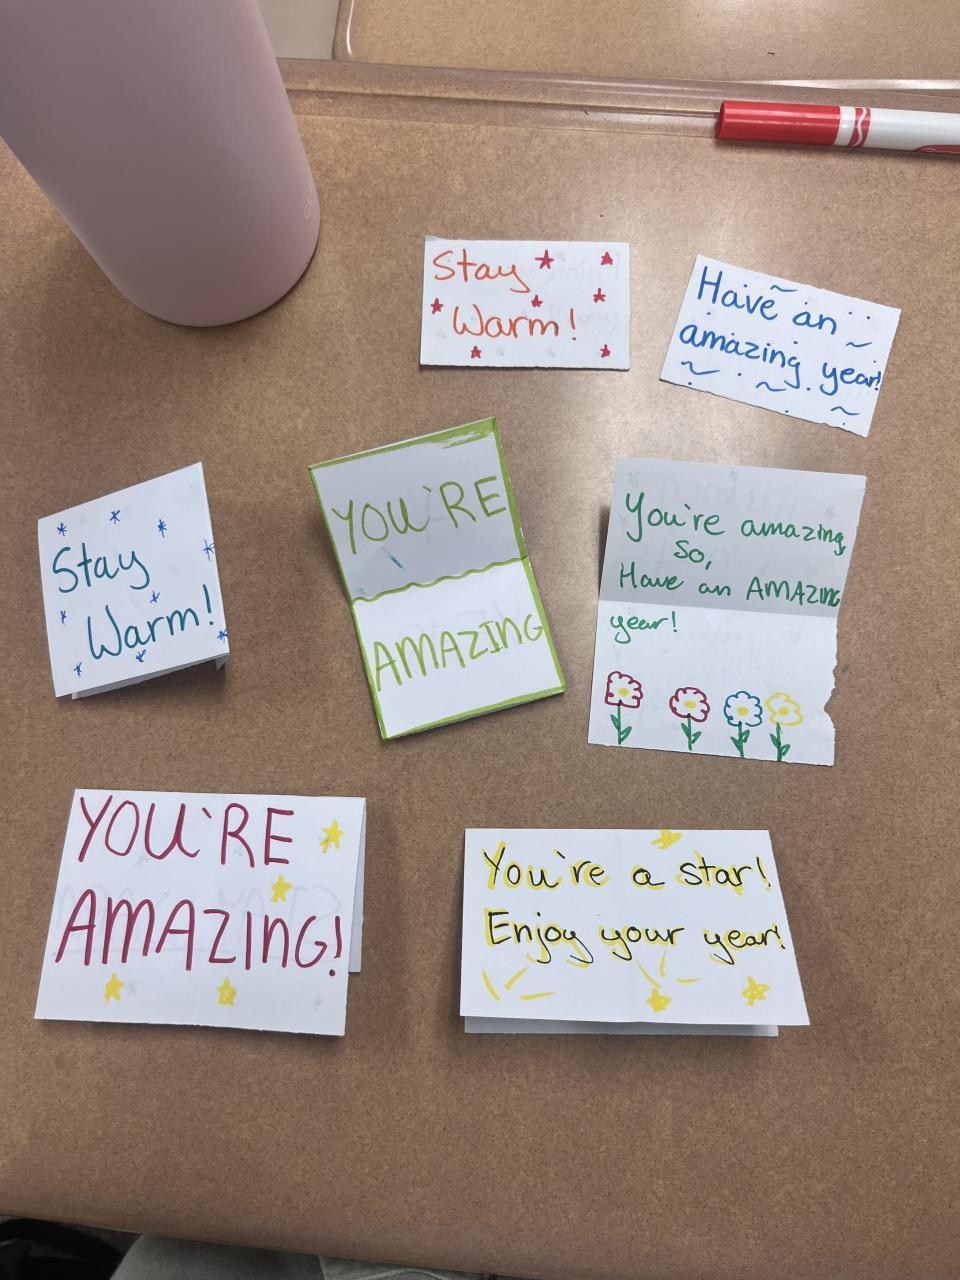 Stay
Warm!
Have an
amazing year!
Stay
Warm!
YOU'RE
AMAZING
You're amazing,
So,
Have an AMAZING
year!
YOU'RE
AMAZING!
You're a star!
Enjoy your year!